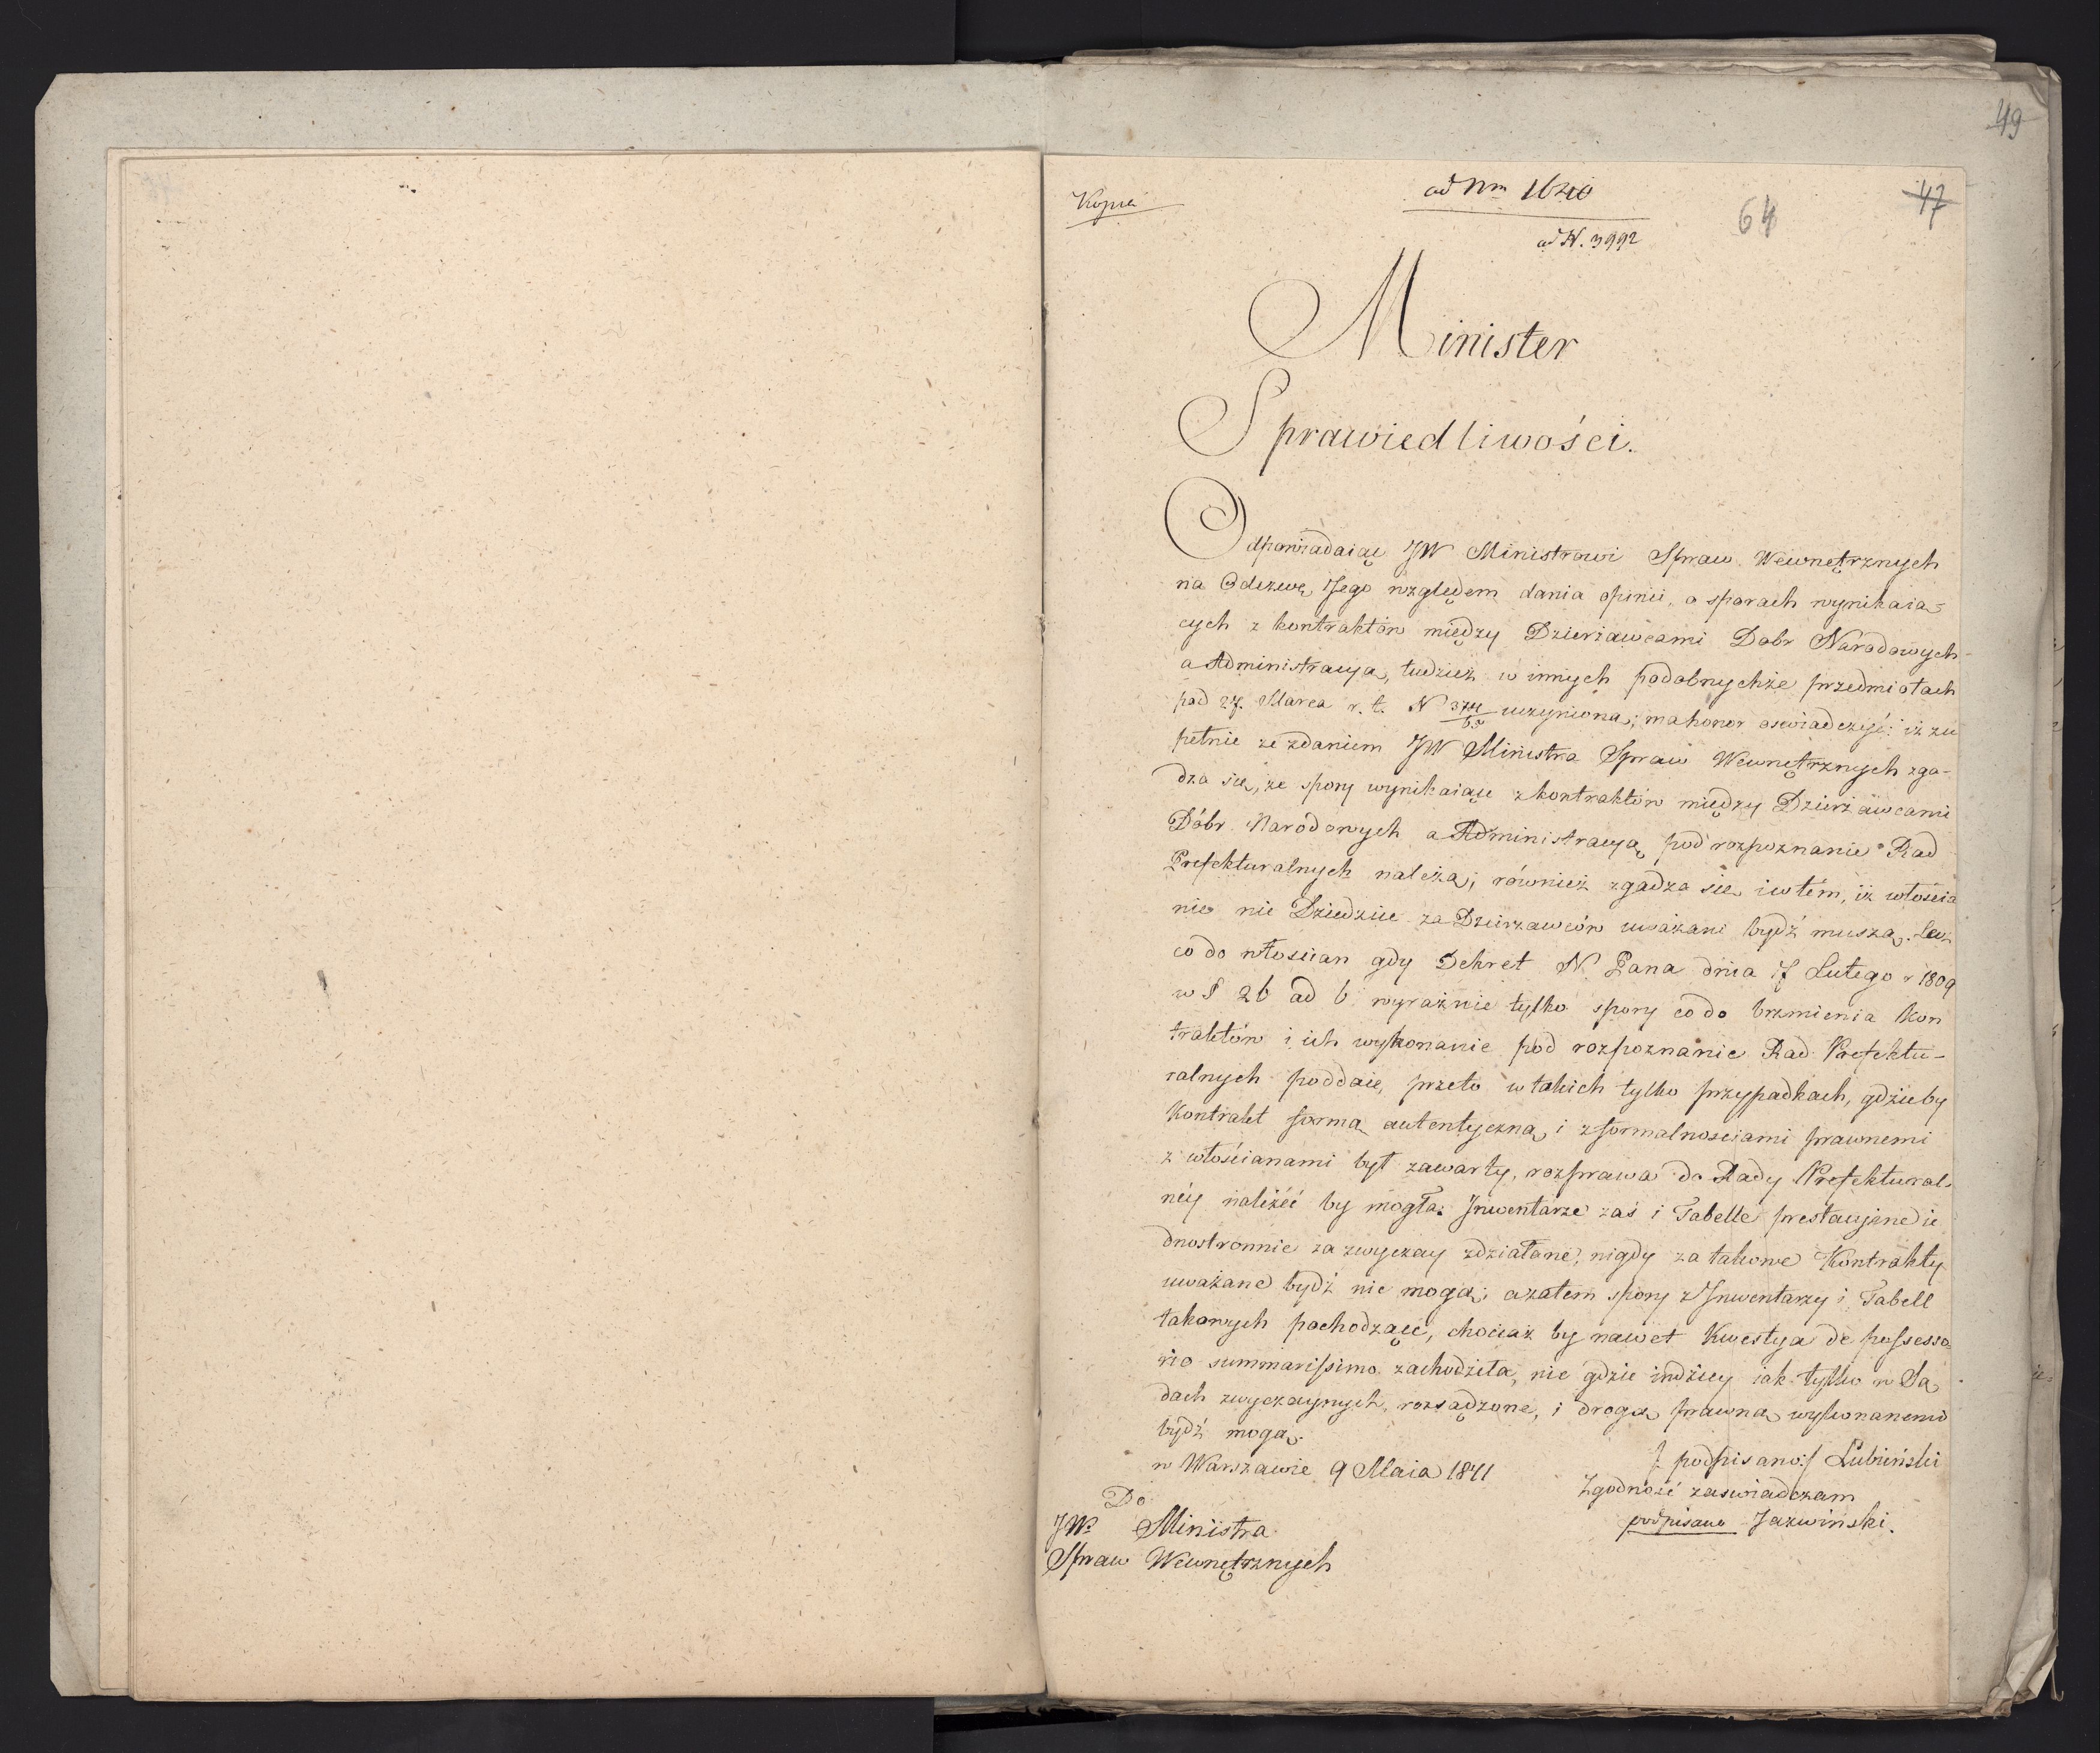 49
Kopia
ad Nm 16240
64
47
ad N. 3992
Minister
Sprawiedliwości.
Odpowiadaiąc JW Ministrowi Spraw Wewnętrznych
na Odezwę Jego względem dania opinii, o sporach wynikaią-
cych z kontraktów między Dzierżawcami Dobr Narodowych
a Administracyą, tudzież w innych podobnychże przedmiotach
pod 27. Marca r. t. N uczynioną; ma honor oswiadczyć: iż zu
pełnie ze zdaniem JW Ministra Spraw Wewnętrznych zga-
dza się, że spory wynikaiące z kontraktów między Dzierżawcami
Dóbr Narodowych a Administracyą pod rozpoznanie Rad
Prefekturalnych należą; również zgadza się i w tém, iż włościa
nie nie Dziedzice za Dzierżawców uważani bydź muszą. Lecz
co do włościan gdy Dekret N. Pana dnia 17 Lutego r 1809
w § 26 ad b wyraźnie tylko spory co do brzmienia Kon
traktów i ich wykonanie pod rozpoznanie Rad Prefektu-
ralnych poddaie, przeto w takich tylko przypadkach, gdzieby
Kontrakt formą autentyczną i z formalnościami prawnemi
z włościanami był zawarty, rozprawa do Rady Prefektural-
néy należéć by mogła. Inwentarze zaś i Tabelle prestacyine ie
dnostronnie zazwyczay zdziałane, nigdy za takowe Kontrakty
uważane bydź nie mogą; a zatem spory z Inwentarzy i Tabell
takowych pochodzące, chociaż by nawet Kwestya de possesso-
rio summarissimo zachodziła, nie gdzie indziey iak tylko w Są
dach zwyczaynych, rozsądzone, i drogą prawną wykonanemi
bydź mogą.
w Warszawie 9 Maia 1811
/ podpisano:/ Lubiński
Zgodność zaswiadczam
podpisano Jazwiński.
Do
JW. Ministra
Spraw Wewnętrznych